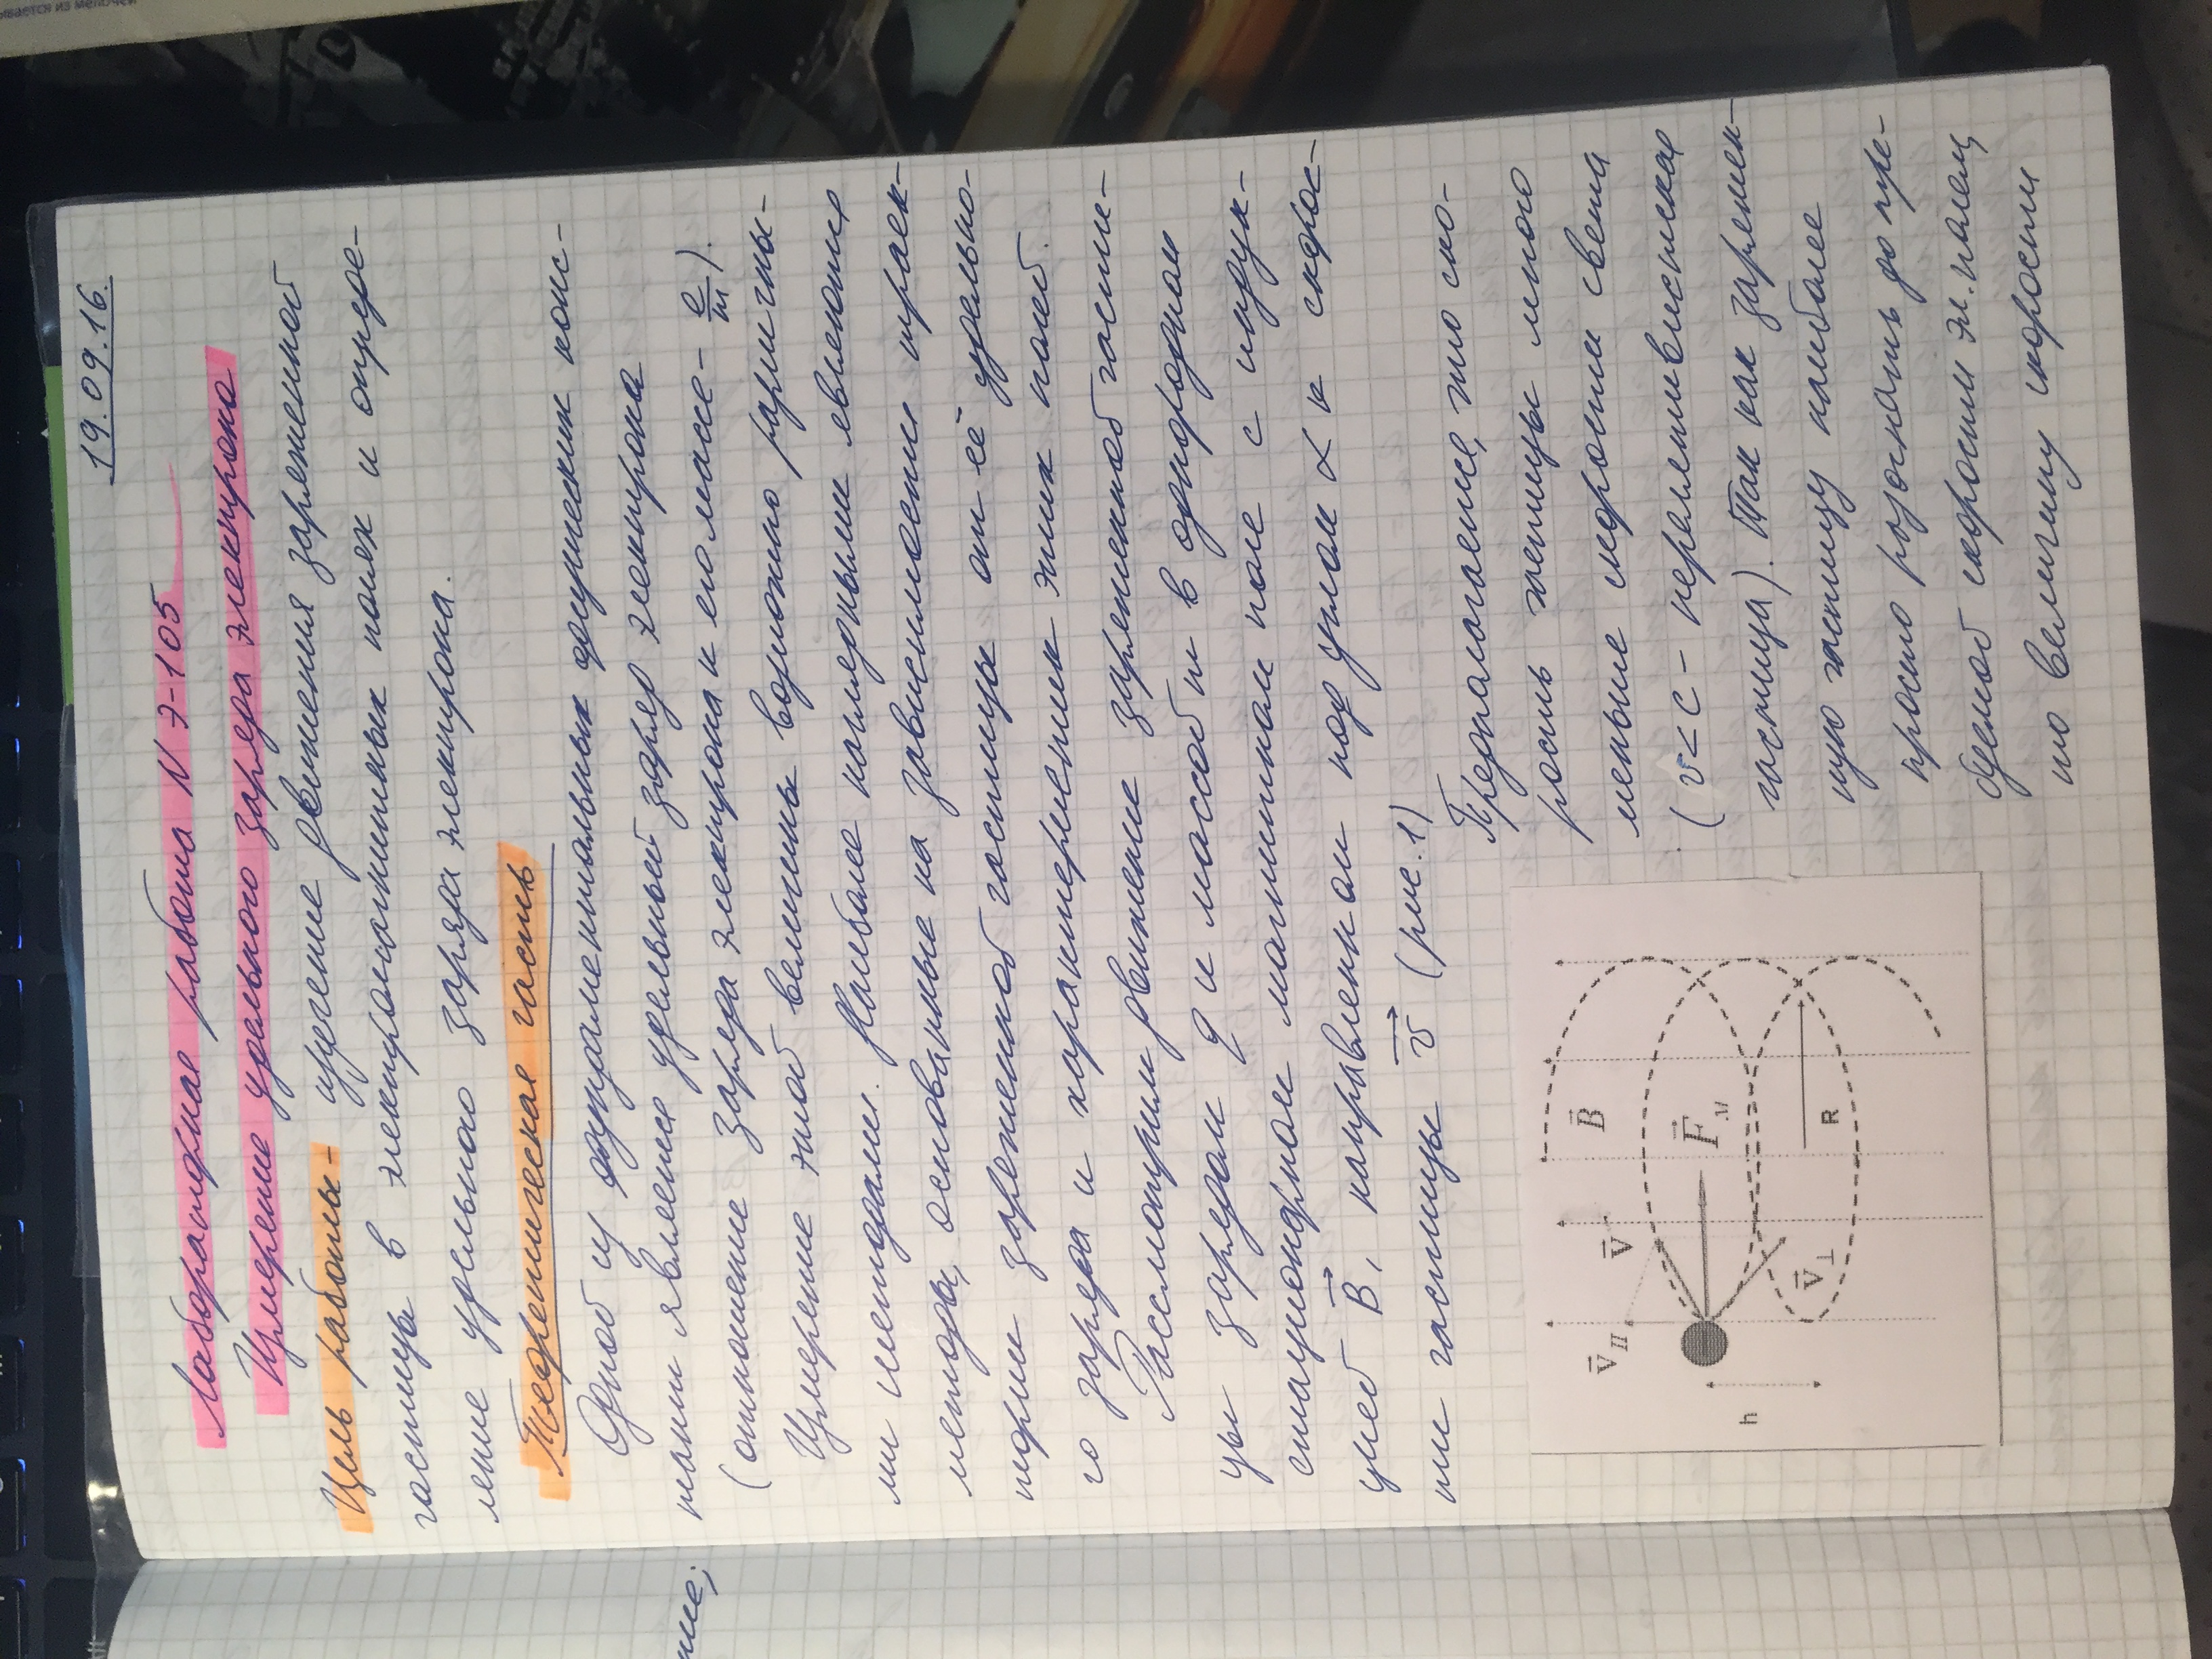 19.09.16.
Лабораторная работа N Э-105
Измерение удельного заряда электрона
Цель работы - изучение движения заряженной
частицы в электромагнитных полях и опреде-
ление удельного заряда электрона.
Теоретическая часть
Одной из фундаментальных физических конс-
тант является удельный заряд электрона
(отношение заряда электрона к его массе - e/m).
Измерение этой величины возможно различны-
ми методами. Наиболее наглядными являются
методы, основанные на зависимости траек-
тории заряженной частицы от её удельно-
го заряда и характеристик этих полей.
Рассмотрим движение заряженной части-
цы зарядом q и массой m в однородном
стационарном магнитном поле с индук-
цией B⃗, направленном под углом α к скорос-
ти частицы v⃗ (рис. 1)
Предполагается, что ско-
рость частицы много
меньше скорости света
(v<c - нерелятивистская
частица). Так как заряжен-
ную частицу наиболее
просто разогнать до тре-
буемой скорости эл. полем,
то величину скорости
v⃗ II
v⃗
B⃗
F⃗ м
h
v⃗ ⊥
R
ние;
Alt